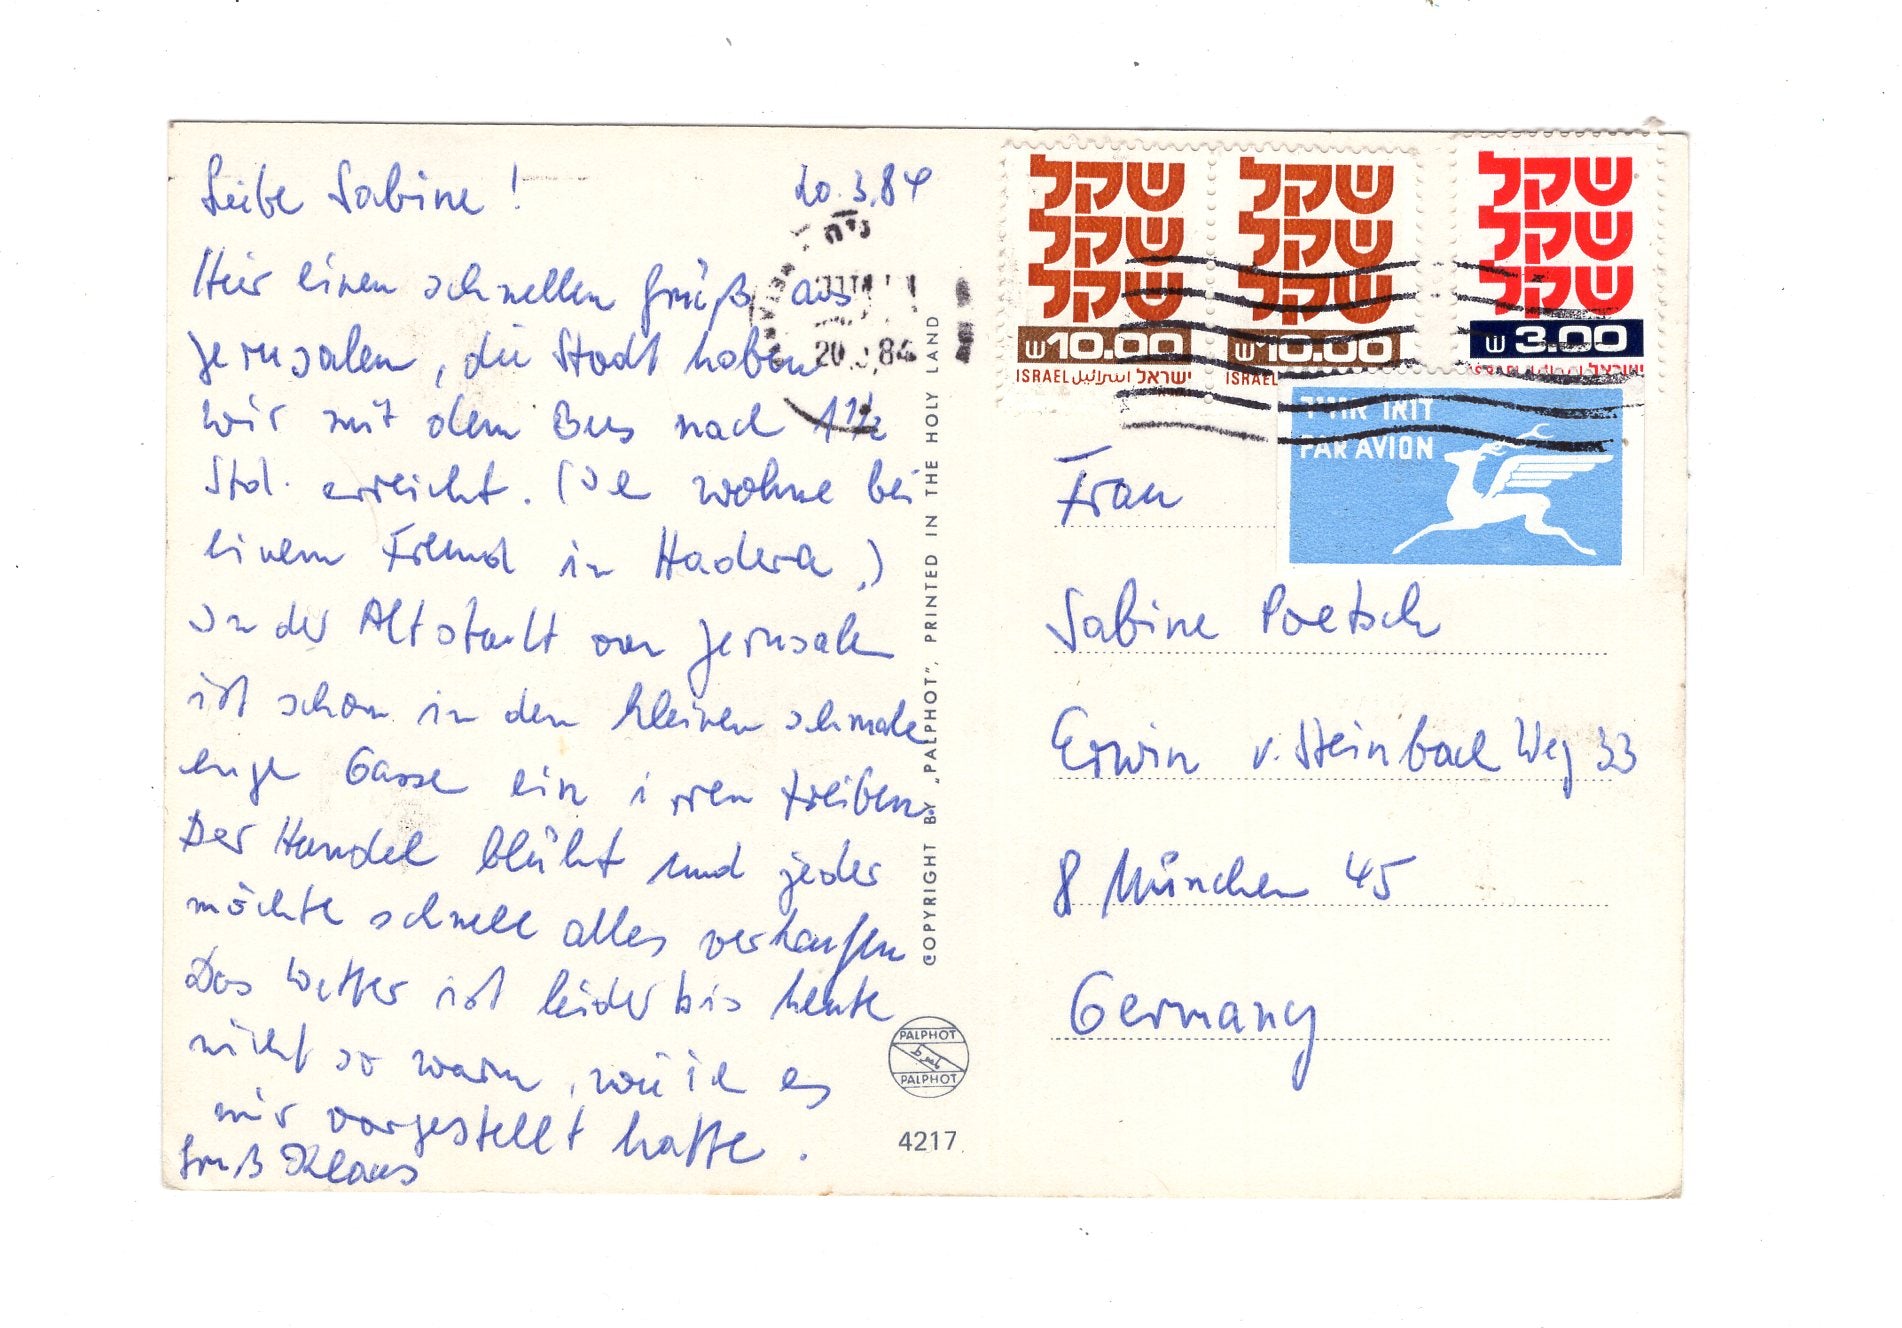 Leibe Sabine! 20.3.84
Heir einen schnellen Gruß aus
Jerusalem, die Stadt haben
wir mit dem Bus nach 1 1/2
Std. erreicht. (Ich wohne bei
einem Freund in Hadera.)
In der Altstadt von Jerusalem
ist schon in den kleinen schmale
enge Gasse ein irren treiben.
Der Handel blüht und jeder
möchte schnell alles verkaufen
Das Wetter ist leider bis heute
nicht so warm, wie ich es
mir vorgestellt hatte.
Gruß Klaus
20 84
COPYRIGHT BY „PALPHOT", PRINTED IN THE HOLY LAND
PALPHOT
PALPHOT
4217
שקל שקל שקל
שקל שקל שקל
שקל שקל שקל
10.00 10.00 3.00
ISRAEL اسرائيل ישראל ISRAEL ישראל
דואר אויר
PAR AVION
Frau
Sabine Poetsch
Erwin v. Steinbach Weg 33
8 München 45
Germany